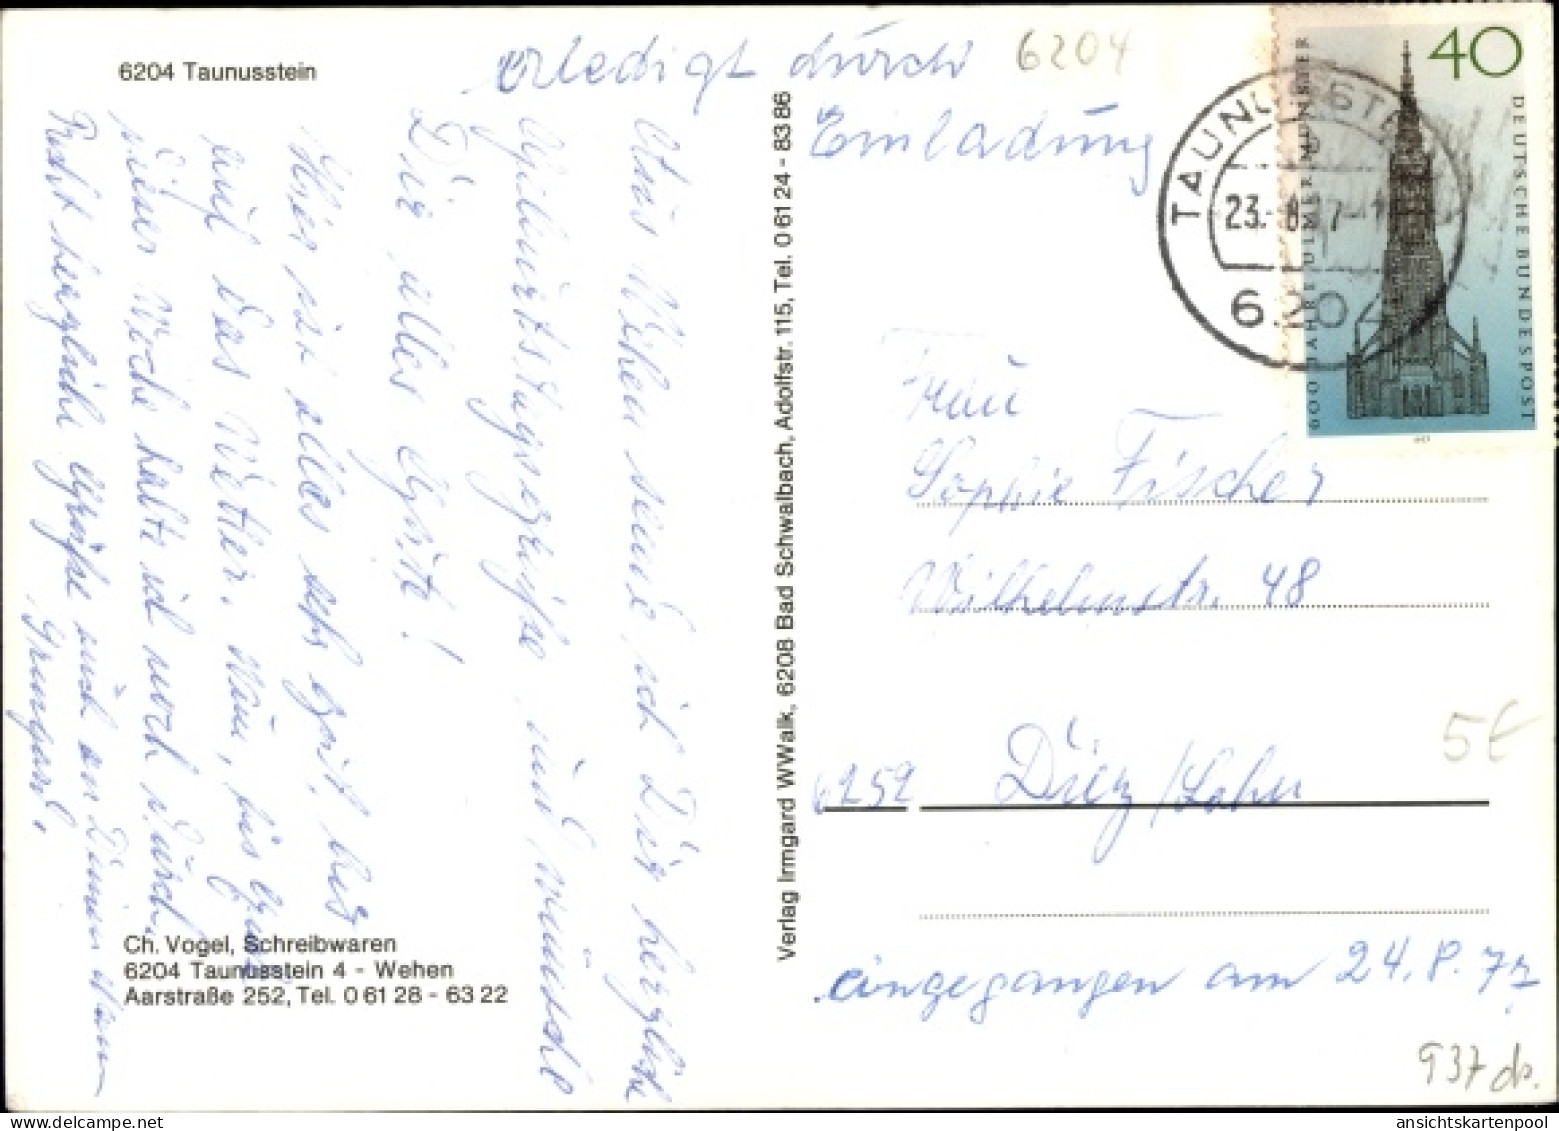 6204 Taunusstein
erledigt durch
Einladung
6204
Aus Wehen sende ich Dir herzliche
Geburtstagsgrüße und wünsche
Dir alles Gute!
Hier ist alles sehr gut, bis
auf das Wetter.
dieser Woche halte ich noch durch.
Recht herzliche Grüße auch an Deinen Mann
Irmgard.
Ch. Vogel, Schreibwaren
6204 Taunusstein 4 - Wehen
Aarstraße 252, Tel. 0 61 28 - 63 22
Verlag Irmgard WWalk, 6208 Bad Schwalbach, Adolfstr. 115, Tel. 0 61 24 - 83 86
40
DEUTSCHE BUNDESPOST
600 JAHRE ULMER MÜNSTER
TAUNUSSTEIN
23.-8.77-1
6204
Frau
Sophie Fischer
Wilhelmstr. 48
6252 Diez/Lahn
5€
eingegangen am 24.8.77
937 ds.
ansichtskartenpool